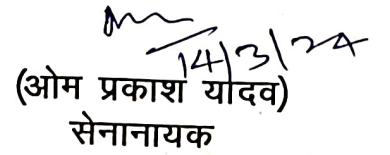 14/3/24
(ओम प्रकाश यादव)
सेनानायक